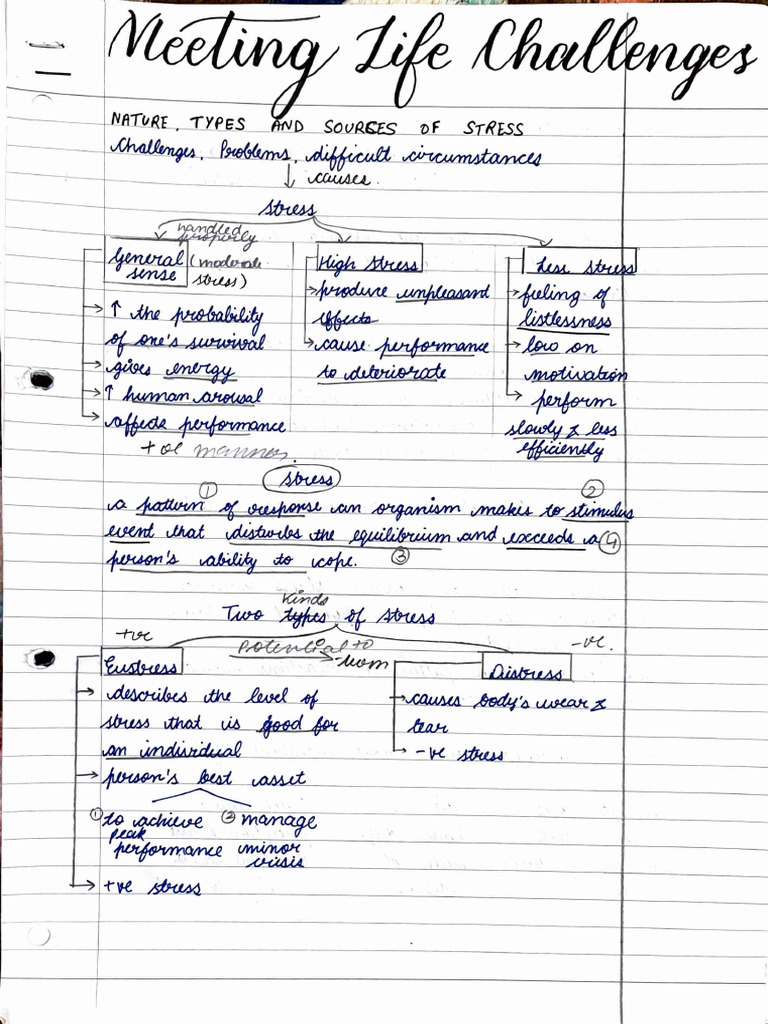 Meeting Life Challenges
NATURE, TYPES AND SOURCES OF STRESS
Challenges, Problems, difficult circumstances
↓ causes.
Stress
handled properly
General sense (moderate stress)
→ ↑ the probability
of one's survival
→ gives energy
→ ↑ human arousal
→ affects performance
+ve manner.
High Stress
→ produce unpleasand
effects
→ cause performance
to deteriorate
Less stress
→ feeling of
listlessness
→ low on
motivation
→ perform
slowly & less
efficiently
Stress
① ②
a pattern of response an organism makes to stimulus
event that disturbs the equilibrium and exceeds a ④
person's ability to cope. ③
kinds
Two types of stress
+ve
Eustress
potential to
→ turn
-ve.
Distress
→ describes the level of
stress that is good for
an individual
→ person's best asset
① to achieve peak performance
② manage minor crisis
→ +ve stress
→ causes body's wear &
tear
→ -ve stress